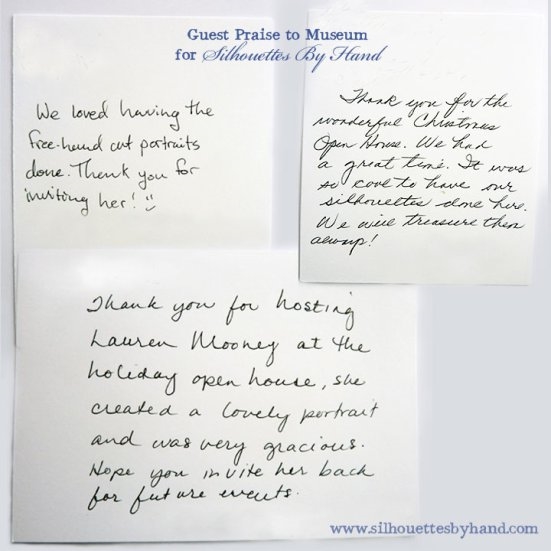 Guest Praise to Museum
for Silhouettes By Hand
We loved having the
free-hand cut portraits
done. Thank you for
inviting her!
Thank you for the
wonderful Christmas
Open House. We had
a great time. It was
so cool to have our
silhouettes done here.
We will treasure them
always!
Thank you for hosting
Lauren Mooney at the
holiday open house, she
created a lovely portrait
and was very gracious.
Hope you invite her back
for future events.
www.silhouettesbyhand.com